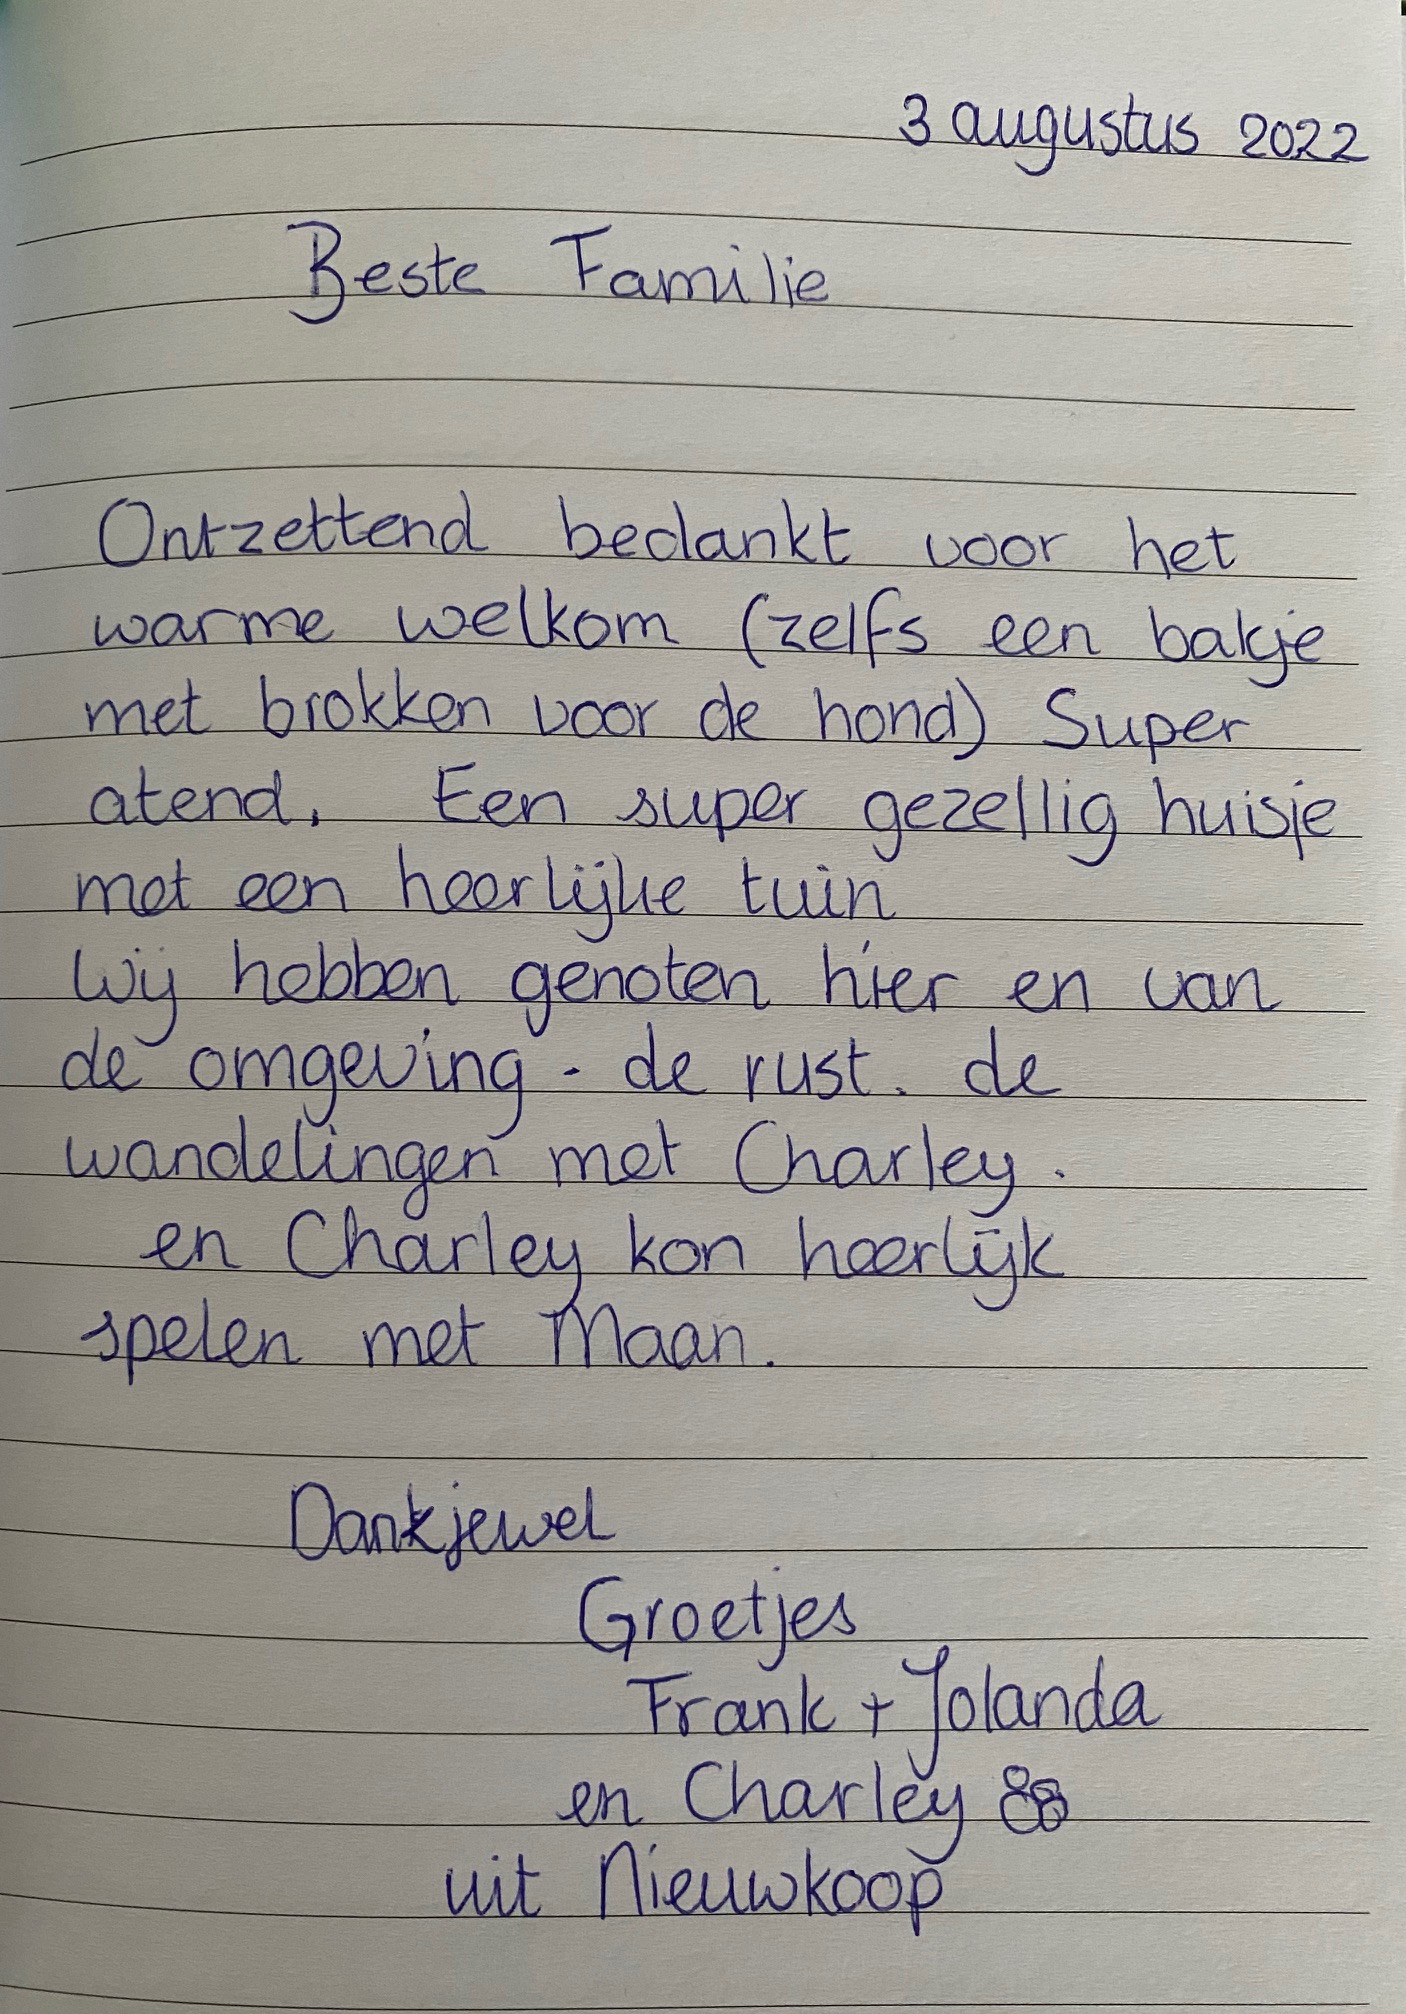 3 augustus 2022
Beste Familie
Ontzettend bedankt voor het
warme welkom (zelfs een bakje
met brokken voor de hond) Super
atend. Een super gezellig huisje
met een heerlijke tuin
Wij hebben genoten hier en van
de omgeving - de rust. de
wandelingen met Charley.
en Charley kon heerlijk
spelen met Maan.
Dankjewel
Groetjes
Frank + Jolanda
en Charley
uit Nieuwkoop